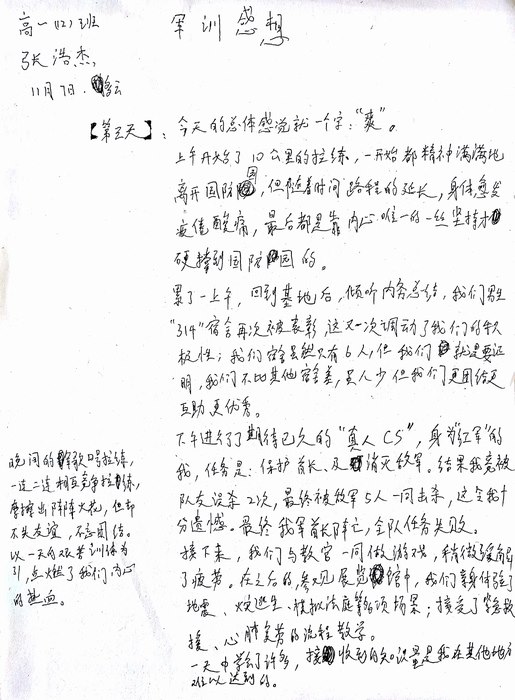 高一(12)班
军训感想
张浩杰
11月7日 多云
【第五天】:今天的总体感觉就一个字:"爽"。
上午开始了10公里的拉练,一开始都精神满满地
离开国防园,但随着时间路程的延长,身体愈发
疲惫酸痛,最后都是靠内心唯一的一丝坚持才
硬撑到国防园的。
累了一上午,回到基地后,倾听内务总结,我们男生
"314"宿舍再次被表彰,这又一次调动了我们的积
极性;我们宿舍虽然只有6人,但我们就是要证
明,我们不比其他宿舍差,虽人少但我们更团结更
互助更优秀。
下午进行了期待已久的"真人CS",身为"红军"的
我,任务是:保护首长及消灭敌军。结果我竟被
队友误杀2次,最终被敌军5人一同击杀,这令我十
分遗憾。最终我军首长阵亡,全队任务失败。
接下来,我们与教官一同做游戏,稍微缓解
了疲劳。在之后的参观展览馆中,我们亲身体验了
地震、火灾逃生、模拟法庭等多项场景;接受了紧急救
援、心肺复苏的流程教学。
一天中学了许多,接收到的知识量是我在其他地方
难以达到的。
晚间的歌唱拉练,
一连二连相互竞争拉练,
摩擦出阵阵火花,但却
不失友谊,不忘团结。
以一天的艰苦训练为
引,点燃了我们内心
的热血。